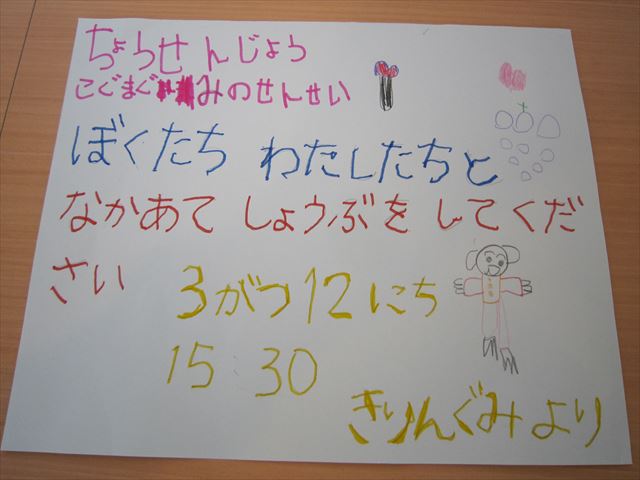 ちょうせんじょう
こぐまぐみのせんせい
ぼくたち わたしたちと
なかあて しょうぶを してくだ
さい 3がつ12にち
15:30
きりんぐみより